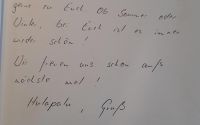 gerne zu Euch Ob Sommer oder
Winter, bei Euch ist es immer
wieder schön!
Wir freuen uns schon aufs
nächste mal!
Gruß